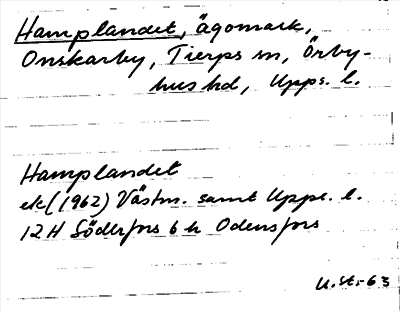 Hamplandet, ägomark,
Onskarby, Tierps sn, Örby-
hus hd, Upps. l.
Hamplandet
ek (1962) Västm. samt Upps. l.
12H Söderfors 6 h Odensfors
U.St.-63